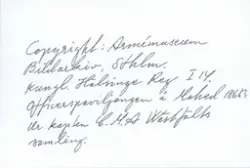 Copyright: Armémuseum
Bildarkiv, Sthlm.
Kungl. Hälsinge Reg I 14.
Officerspaviljongen å Mohed 1868.
Ur kapten C.M.A Westfälts
samling.